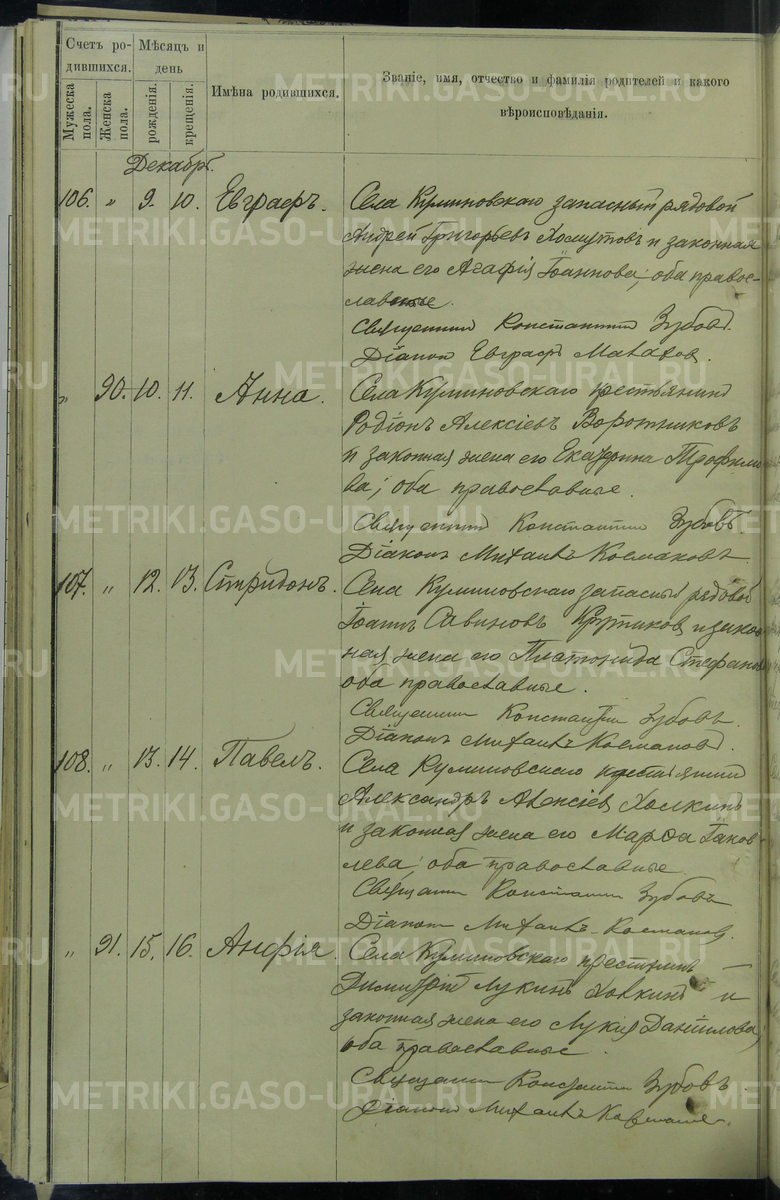 Счетъ ро-
дившихся.
Мужеска
пола.
Женска
пола.
Мѣсяцъ и
день
рожденія.
крещенія.
Имѣна родившихся.
Званіе, имя, отчество и фамилія родителей и какого
вѣроисповѣданія.
METRIKI.GASO-URAL.RU
Декабрь.
106. „ 9. 10. Евграфъ. Села Куминовскаго запасный рядовой
Андрей Григорьевъ Хомутовъ и законная
жена его Агафія Іоаннова; оба правос-
лавные.
Священникъ Константинъ Зубовъ.
Діаконъ Евграфъ
„ 90. 10. 11. Анна. Села Куминовскаго крестьянинъ
Родіонъ Алексіевъ Воротниковъ
и законная жена его Екатерина Трофимо
ва; оба православные.
Священникъ Константинъ Зубовъ.
Діаконъ Михаилъ Космаковъ.
107. „ 12. 13. Спиридонъ. Села Куминовскаго запасный рядовой
Іоаннъ Савиновъ Крутиковъ и закон
ная жена его Платонида Стефанов
оба православные.
Священникъ Константинъ Зубовъ.
Діаконъ Михаилъ Космаковъ.
108. „ 13. 14. Павелъ. Села Куминовскаго крестьянинъ
Александръ Алексіевъ Холкинъ
и законная жена его Марфа Іаков-
лева; оба православные.
Священникъ Константинъ Зубовъ
Діаконъ Михаилъ Космаковъ.
„ 91. 15. 16. Анфія. Села Куминовскаго крестьянинъ
Димитрій Лукинъ Холкинъ и
законная жена его Лукія Даніилова;
оба православные.
Священникъ Константинъ Зубовъ.
Діаконъ Михаилъ Космаковъ.